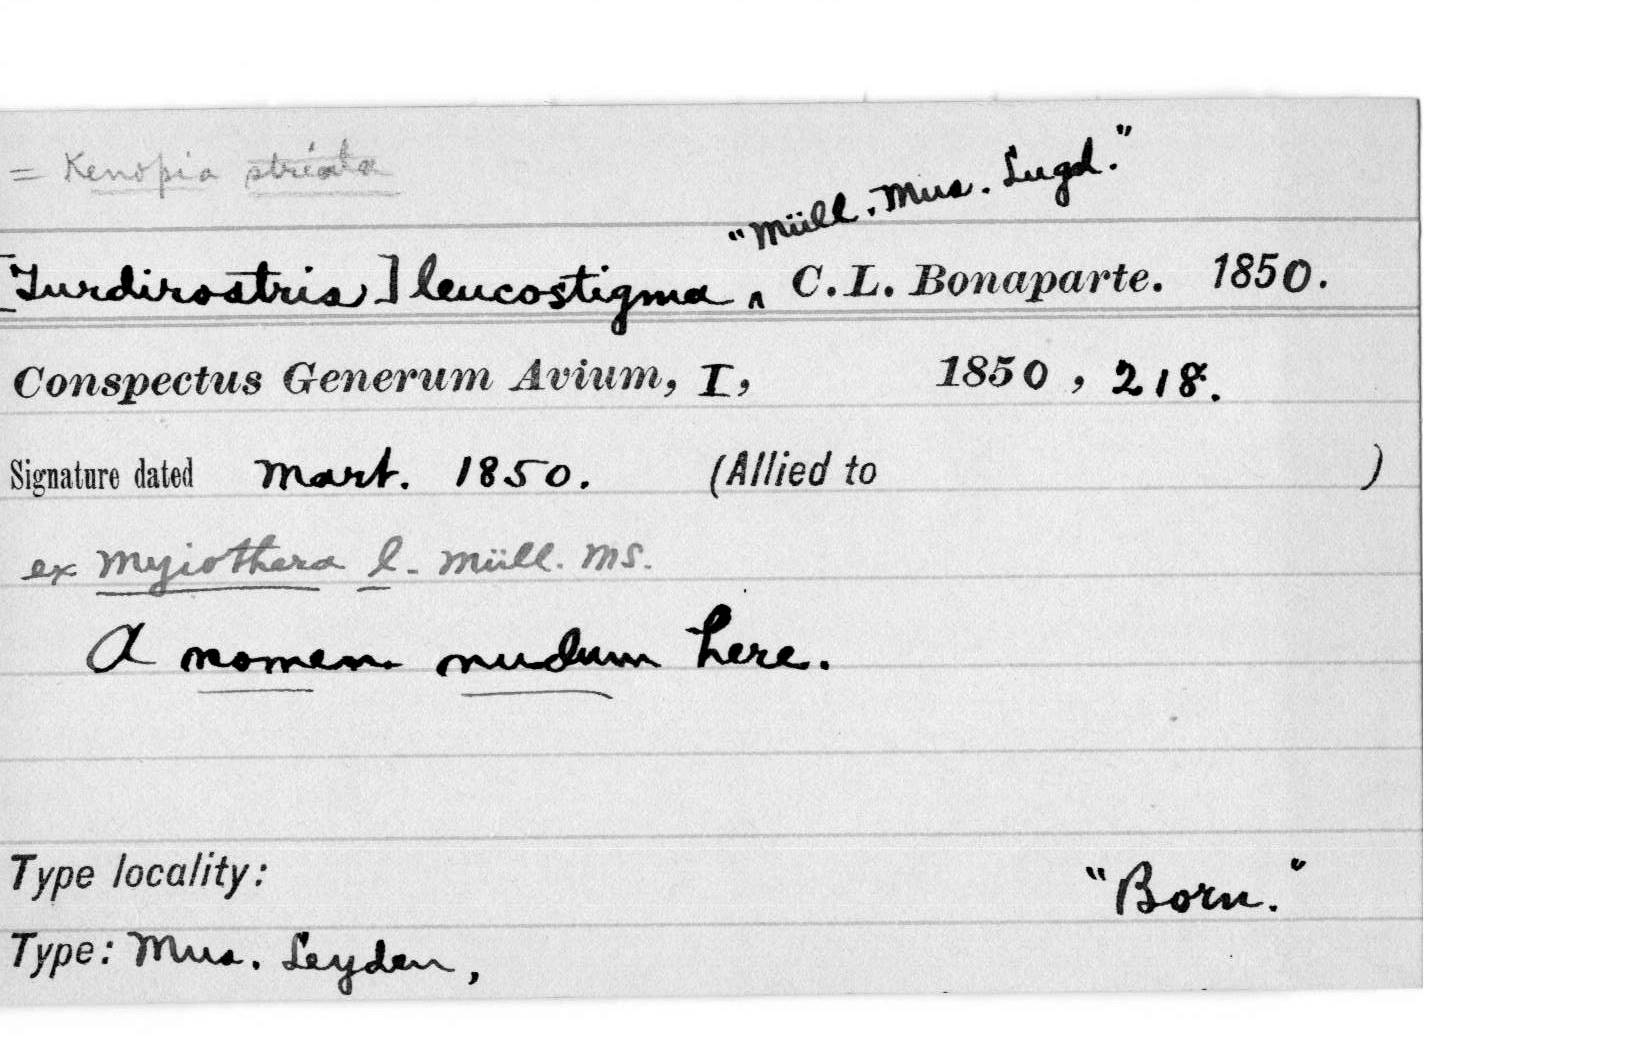 = Kenopia striata
"Müll. Mus. Lugd."
[Turdirostris] leucostigma ^ C.L. Bonaparte. 1850.
Conspectus Generum Avium, I, 1850, 218.
Signature dated Mart. 1850. (Allied to )
ex Myiothera l. Müll. MS.
A nomen nudum here.
Type locality: "Born."
Type: Mus. Leyden,